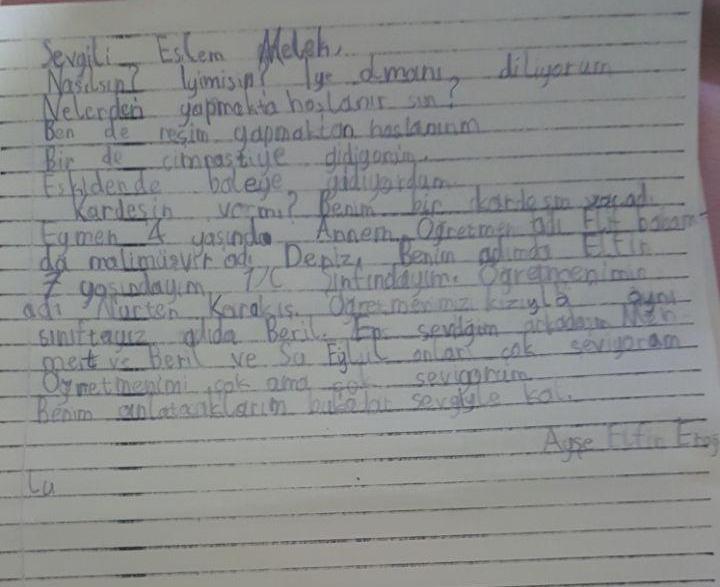 Sevgili Eslem Melek,
Nasılsın? İyimisin? İye olmanı, diliyorum
Nelerden yapmakta hoşlanır sın?
Ben de resim yapmaktan hoşlanırım
Bir de cimnastiye gidiyorum.
Eskidende baleye gidiyordum
Kardeşin varmı? Benim bir kardeşim var adı
Eymen 4 yaşında Annem Öğretmen adı Elif babam
da malimüşvir adı Deniz, Benim adımda Elfin
7 yaşındayım, 1/C sınfındayım. Öğretmenimin
adı Nurten Karakış. Öğretmenimiz kızıyla aynı
sınıftayız adıda Beril. En sevdiğim arkadaşım
mert ve Beril ve Su Eylül onları çok seviyoram
Öğretmenimi çok ama çok seviyorum
Benim anlatacaklarım bukadar sevgiyle kal.
Ayşe Elfin